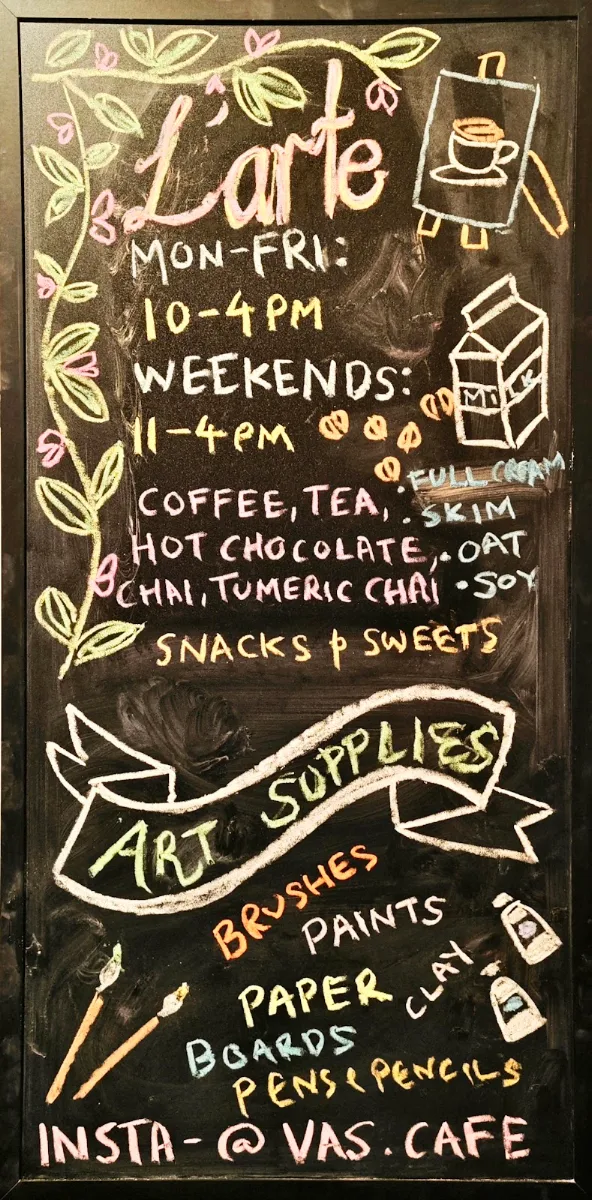 L'arte
MON-FRI:
10-4PM
WEEKENDS:
11-4PM
MILK
COFFEE, TEA,
HOT CHOCOLATE,
CHAI, TUMERIC CHAI
• FULL CREAM
• SKIM
• OAT
• SOY
SNACKS & SWEETS
ART SUPPLIES
BRUSHES
PAINTS
PAPER
CLAY
BOARDS
PENS & PENCILS
INSTA-@VAS.CAFE